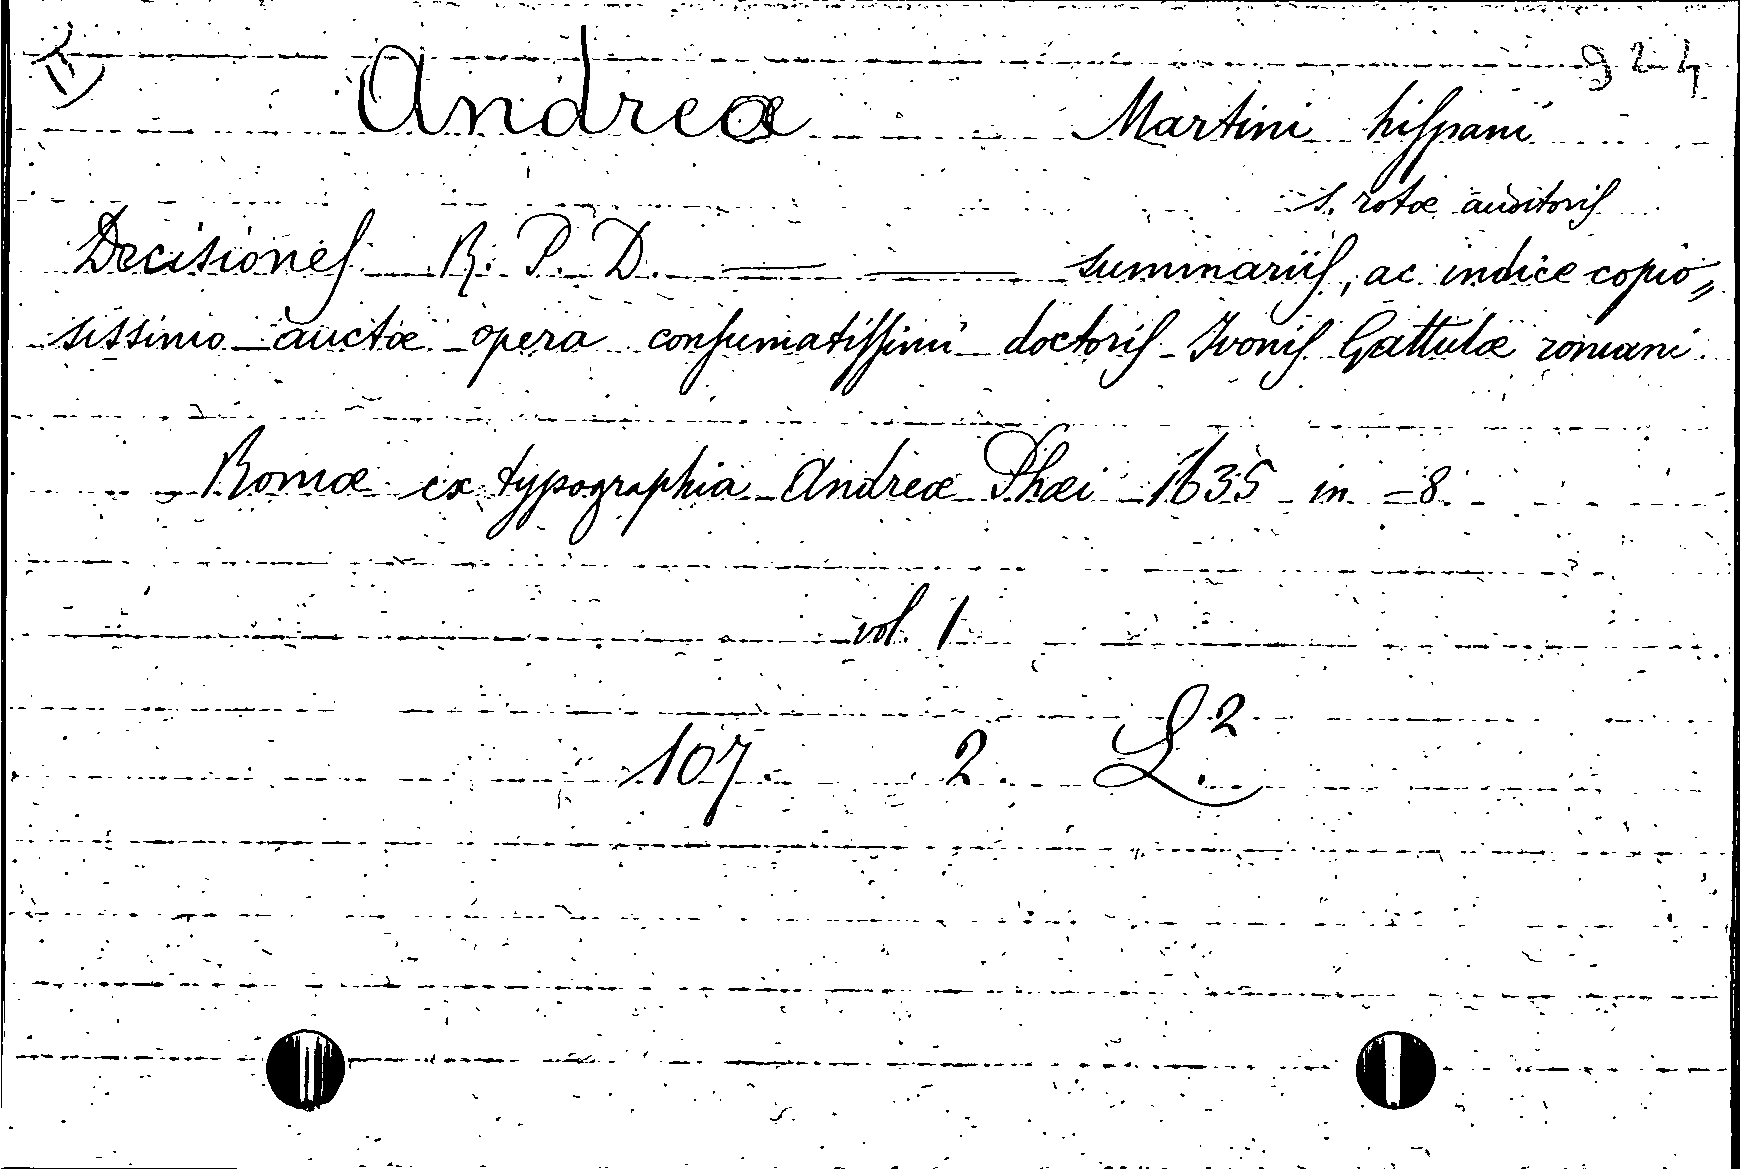 924
Andreæ Martini hiſpani
s. rotæ auditoriſ
Decisioneſ R. P. D. — — summariiſ, ac indice copio„
sissimo auctæ opera conſumatiſſimi doctoriſ Ivoniſ Gattulæ romani
Romæ ex typographia Andreæ Phæi 1635 in -8
vol. 1
107. 2. L.²